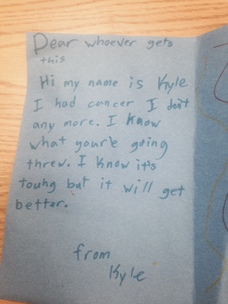 Dear whoever gets
this
Hi my name is Kyle
I had cancer I don't
any more. I know
what your'e going
threw. I know it's
touhg but it will get
better.
from
Kyle